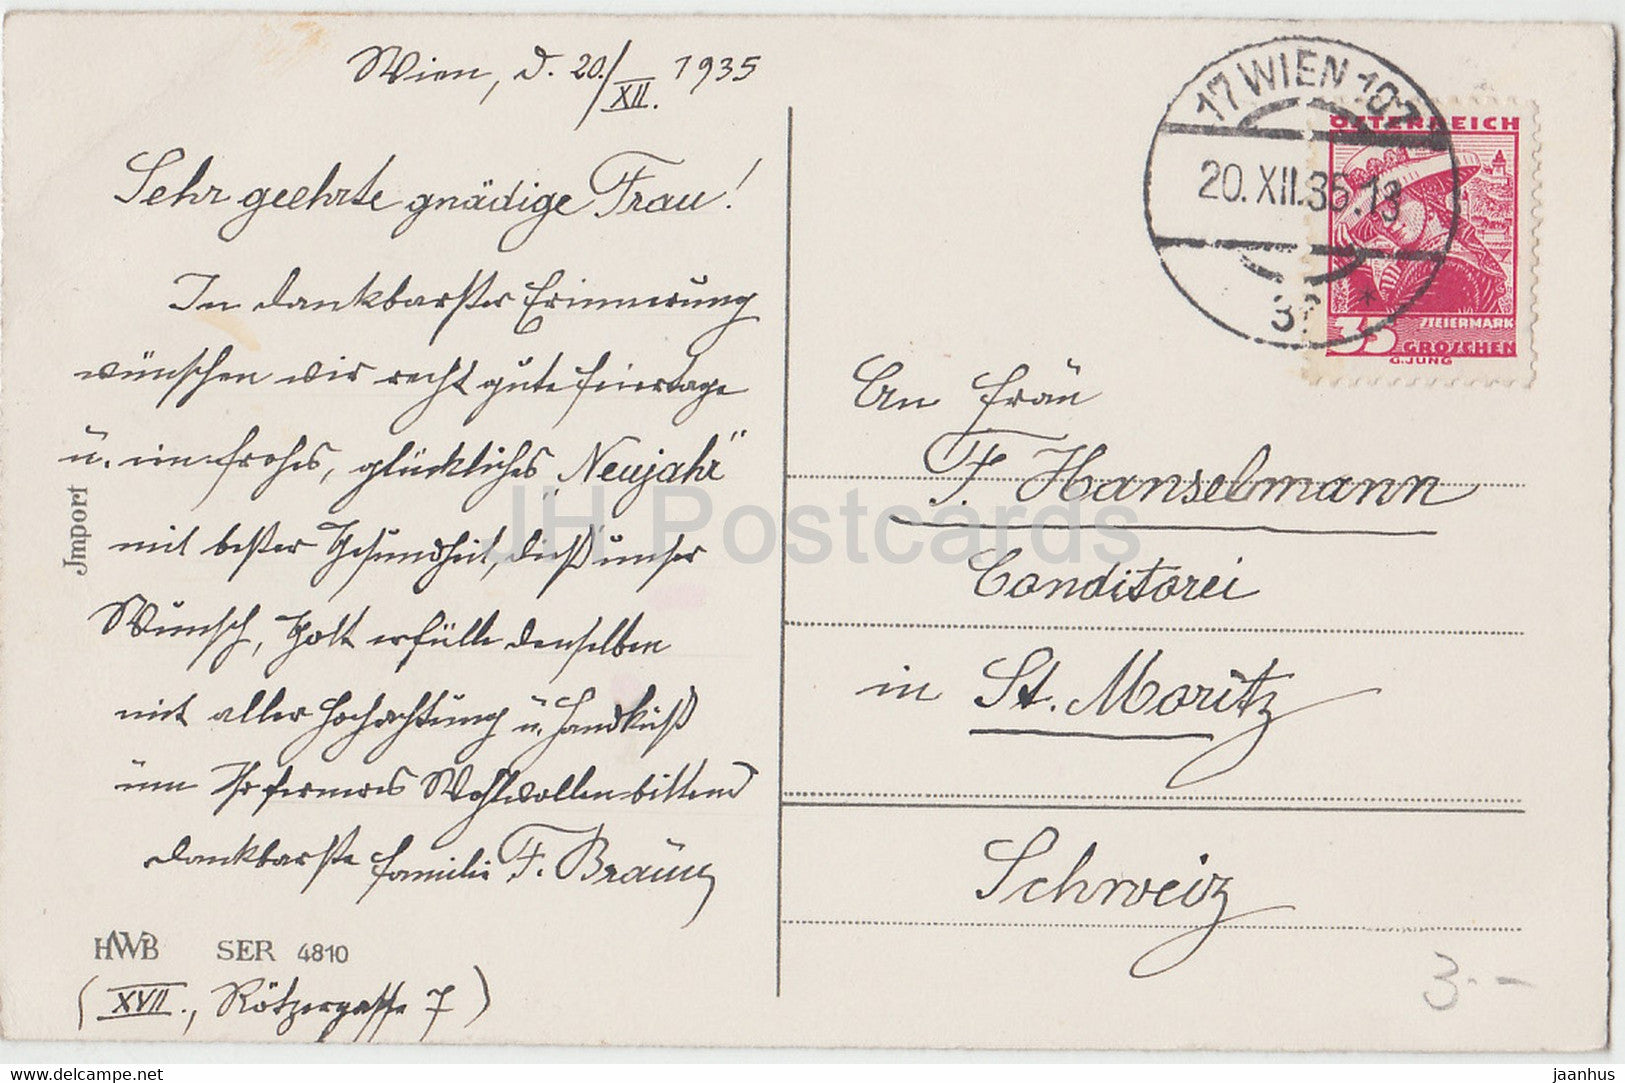 Wien, d. 20./XII. 1935
Sehr geehrte gnädige Frau!
In dankbarster Erinnerung
wünschen wir recht gute Feiertage
u. ein frohes, glückliches „Neujahr“
mit bester Gesundheit, dieß unser
Wunsch, Gott erfülle denselben
mit aller Hochachtung u. Handkuß
um Ihr ferneres Wohlwollen bittend
dankbarste Familie F. Bräuer
Jmport
HWB SER 4810
(XVII., Rötzergasse 7)
17 WIEN 107
20.XII.35.13
*
ÖSTERREICH
STEIERMARK
35 GROSCHEN
G.JUNG
An Frau
F. Hanselmann
Conditorei
in St. Moritz
Schweiz
3.-
JH Postcards
delcampe.net
jaanhus